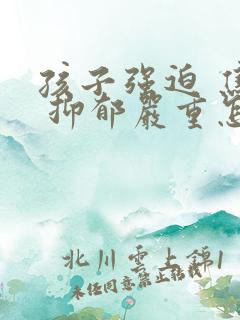 孩子强迫
抑郁嚴重
北川雲上錦1
未经同意禁止转载